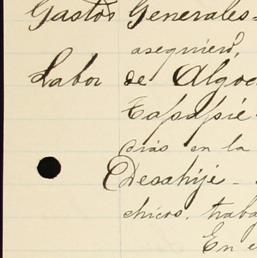 Gastos Generales-
aseguiero,
Labor de Algod
Tapapié-
dias en la
Desahije -
chicos, traba
En e